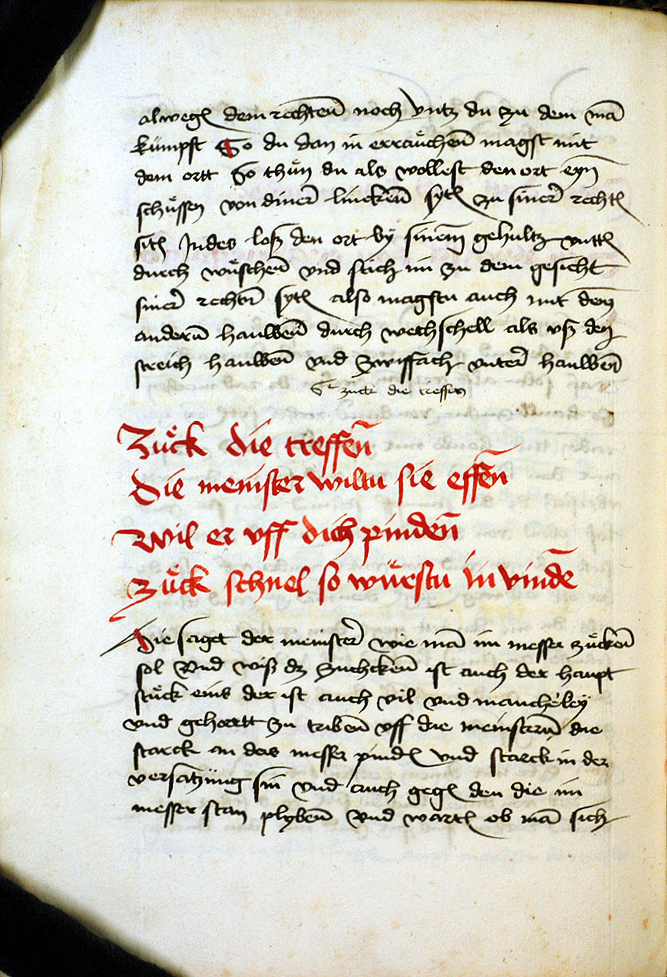 alwegen dem rechten nach untz du zu dem mā
kümpst So du dan in erraüchen magst mit
dem ortt So thün du als wollest den ort eyn
schüssen von diner lincken sytē zu siner rechtē
sitē Indes loß den ort by sinem gehultz unttē
durch wüschen und stich im zu dem gesicht
siner rechten sytē also magstu auch mit dem
anderen hauwen durch wechschell als uß dem
streich hauwen und zwiffach untere hauwen
zuck die treffen
Zuck die treffen
die meinster wiltu sie effen
Wil er uff dich pinden
zuck schnel so wüerstu in vinde
Hie saget der meinster wie mā im messer zücken
sol Und wiß dz zuchcken ist auch der haupt
stück eins der ist auch vil und mancherley
und gehortt zu triben uff die meinsteren die
starck an das messer pindē und starck in der
versatzüng sin und auch gegē den die im
messer stan plyben und wartē ob mā sich